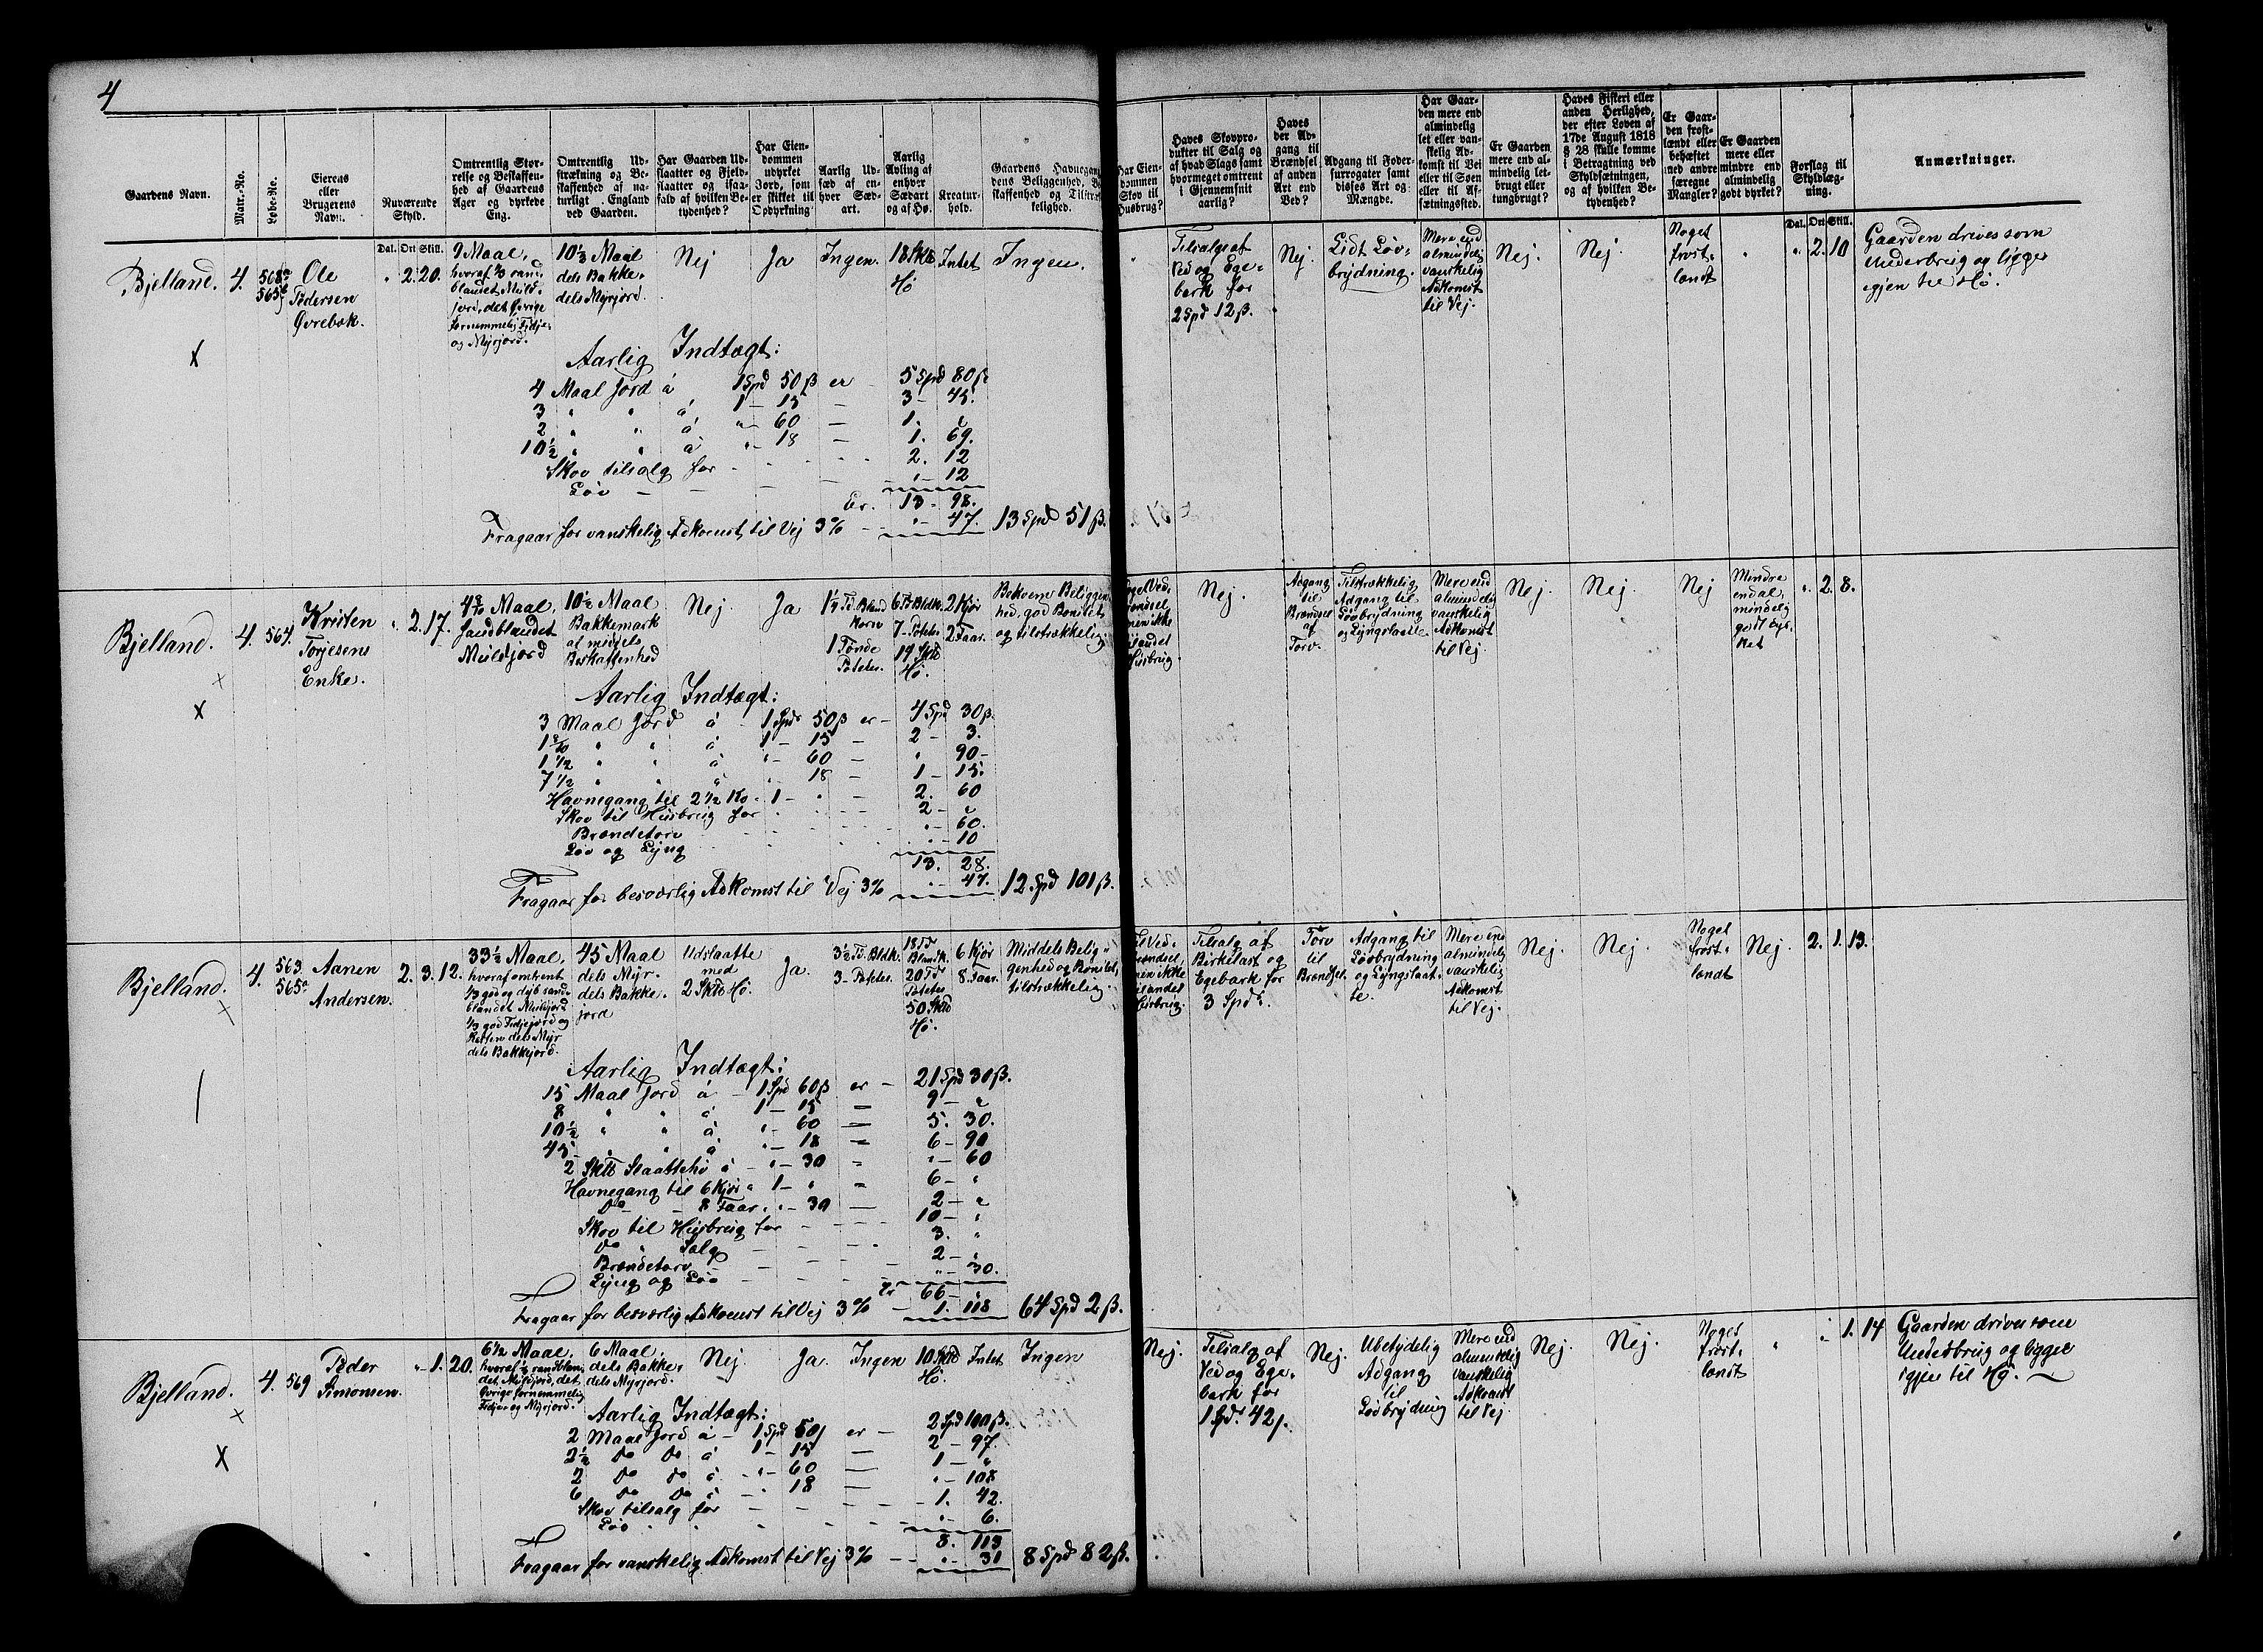 4
Gaardens Navn.
Matr.-No.
Løbe-No.
Eierens
eller
Brugerens
Navn.
Nuværende
Skyld.
Omtrentlig Stør-
relse og Beskaffen-
hed af Gaardens
Ager og dyrkede
Eng.
Omtrentlig Ud-
strækning og Be-
skaffenhed af na-
turligt England
ved Gaarden.
Har Gaarden Ud-
slaatter og Fjeld-
slaatter og isaa-
fald af hvilken Be-
tydenhed?
Har Eien-
dommen
udyrket
Jord, som
er skikket til
Opdyrkning
Aarlig Ud-
sæd af en-
hver Sæd-
art.
Aarlig
Avling af
enhver
Sædart
og af Hø.
Kreatur-
hold.
Gaardens Havnegang,
dens Beliggenhed, Be-
skaffenhed og Tilstræk-
kelighed.
Har Eien-
dommen
Skov til
Husbrug?
Haves Skovpro-
dukter til Salg og
af hvad Slags samt
hvormeget omtrent
i Gjennemsnit
aarlig?
Haves
der Ad-
gang til
Brændsel
af anden
Art end
Ved?
Adgang til Foder-
surrogater samt
disses Art og
Mængde.
Har Gaar-
den mere end
almindelig
let eller van-
skelig Ad-
komst til Vei
eller til Søen
eller til Af-
sætningssted.
Er Gaarden
mere end al-
mindelig let-
brugt eller
tungbrugt?
Haves Fiskeri eller
anden Herlighed,
der efter Loven af
17de August 1818
§ 28 skulle komme
i Betragtning ved
Skyldsætningen,
og af hvilken Be-
tydenhed?
Er Gaar-
den frost-
lændt eller
behæftet
med andre
særegne
Mangler?
Er Gaarden
mere eller
mindre end
almindelig
godt dyrket?
Forslag til
Skyldlæg-
ning.
Anmærkninger.
Dal. Ort Skill.
Dal. Ort Skill.
Bjelland. 4. 568a
565b
Ole
Pedersen
Øvrebøk.
" 2. 20.
9 Maal,
hvoraf 2/3 sand-
blandet Muld-
jord, det Øvrige
fornemmelig Fidje-
og Myrjord.
10½ Maal
dels Bakke-
dels Myrjord.
Nej
Ja
Ingen.
18 Sktd
Hø
Intet
Ingen.
Tilsalgs af
Ved og Ege-
bark for
2 Spd 12 ß.
Nej.
Lidt Løv-
brydning.
Mere end
almindelig
vanskelig
Adkomst
til Vej.
Nej.
Nej.
Noget
frost-
lændt
"
" 2. 10
Gaarden drives som
Underbrug og ligger
igjen til Hø.
x
Aarlig Indtægt:
4 Maal Jord à 1 Spd 50 ß er 5 Spd 80 ß
3 " " à 1 – 15 — 3 – 45.
2 " " à " – 60 — 1. "
10½ " " à " – 18 — 1. 69.
Skov tilsalg for 2. 12
Løv — " – 12
Er. 13 – 98.
Fragaar for vanskelig Adkomst til Vej 3% " – 47. 13 Spd 51 ß.
Bjelland. 4. 564.
Kristen
Torjesens
Enke.
" 2. 17.
4 8/10 Maal,
Sandblandet
Muldjord
10½ Maal
Bakkemark
af middels
Beskaffenhed
Nej.
Ja
1½ Td. Bland
korn
1 Tønde
Poteter.
6 Td Bldk.
7 – Poteter
19 Sktd
Hø.
2 Kjør
2 Faar.
Bekvem Beliggen-
hed, god Bonitet,
og tilstrækkelig.
Nej.
Adgang
til
Brændsel
af
Torv.
Tilstrækkelig
Adgang til
Løvbrydning
og Lyngslaatte.
Mere end
almindelig
vanskelig
Adkomst
til Vej.
Nej.
Nej.
Nej
Mindre
end al-
mindelig
godt dyr-
ket
" 2. 8.
x
x
Aarlig Indtægt:
3 Maal Jord à 1 Spd 50 ß er – 4 Spd 30 ß.
1 8/10 " " à 1 – 15 — 2 – 3.
1 1/2 " " à " – 60 — " 90 –
7 1/2 " " à " 18 — 1 – 15.
Havnegang til 2 1/2 Ko 1 – " — 2. 60
Skov til Husbrug for 2 – "
Brændetorv " – 60.
Løv og Lyng " – 10
13. 28.
Fragaar for besværlig Adkomst til Vej 3% " – 47. 12 Spd 101 ß.
Bjelland. 4. 563.
565a
Aanen
Andersen.
2. 3. 12.
33½ Maal,
hvoraf omtrent
1/3 god og dyb sand-
blandet Muldjord
1/3 god Fidjejord og
Resten dels Myr
dels Bakkejord.
45 Maal
dels Myr-
dels Bakke-
jord
Udslaatte
med
2 Sktd Hø.
Ja.
3½ Td. Bldk.
3 – Poteter.
18 Td
Blandk.
20 Td
Poteter
50 Sktd
Hø.
6 Kjør
8 Faar.
Middels Belig-
genhed og Bonitet,
tilstrækkelig.
Tilsalg af
Birkelast og
Egebark for
3 Spd.
Torv
til
Brændsel.
Adgang til
Løvbrydning
og Lyngslaat-
te.
Mere end
almindelig
vanskelig
Adkomst
til Vej.
Nej.
Nej.
Noget
frost-
lændt
Nej.
2. 1. 13.
x
Aarlig Indtægt:
15 Maal Jord à – 1 Spd 60 ß er – 21 Spd 30 ß.
8 " " à 1 – 15 — 9 – "
10½ " " à " – 60 — 5. 30.
45 – " " à " – 18 — 6 – 90
2 Sktd Slaattehø à " – 30 – " – 60
Havnegang til 6 Kjør à 1 – " – 6 – "
Do – 8 Faar " – 30 — 2 – "
Skov til Husbrug for 10 – "
Do " Salg 3. "
Brændetorv 2 – "
Lyng og Løv " – 30.
Er 66 – "
Fragaar for besværlig Adkomst til Vej 3% – 1. 118 64 Spd 2 ß.
Bjelland. 4. 569
Peder
Simonsen.
" – 1. 20.
6½ Maal,
hvoraf ½ sandblan-
det Muldjord, det
Øvrige fornemmelig
Fidje og Myrjord.
6 Maal,
dels Bakke-
dels Myrjord.
Nej.
Ja.
Ingen
10 Sktd
Hø.
Intet
Ingen
Nej.
Tilsalg af
Ved og Ege-
bark for
1 Spd. 42 ß.
Nej.
Ubetydelig
Adgang
til
Løvbrydning
Mere end
almindelig
vanskelig
Adkomst
til Vej.
Nej.
Nej.
Noget
frost-
lændt
"
" 1. 14
Gaarden drives som
Underbrug og ligger
igjen til Hø.
x
x
Aarlig Indtægt:
2 Maal Jord à – 1 Spd 50 ß er – 2 Spd 100 ß.
2½ Do Do à 1 – 15 — 2 – 97.
2 Do Do à " – 60 — 1 – "
6 Do Do à – " 18 — " – 108
Skov tilsalg for 1. 42.
Løv " – 6.
8. 113
Fragaar for vanskelig Adkomst til Vej 3% – " – 31 8 Spd 82 ß.